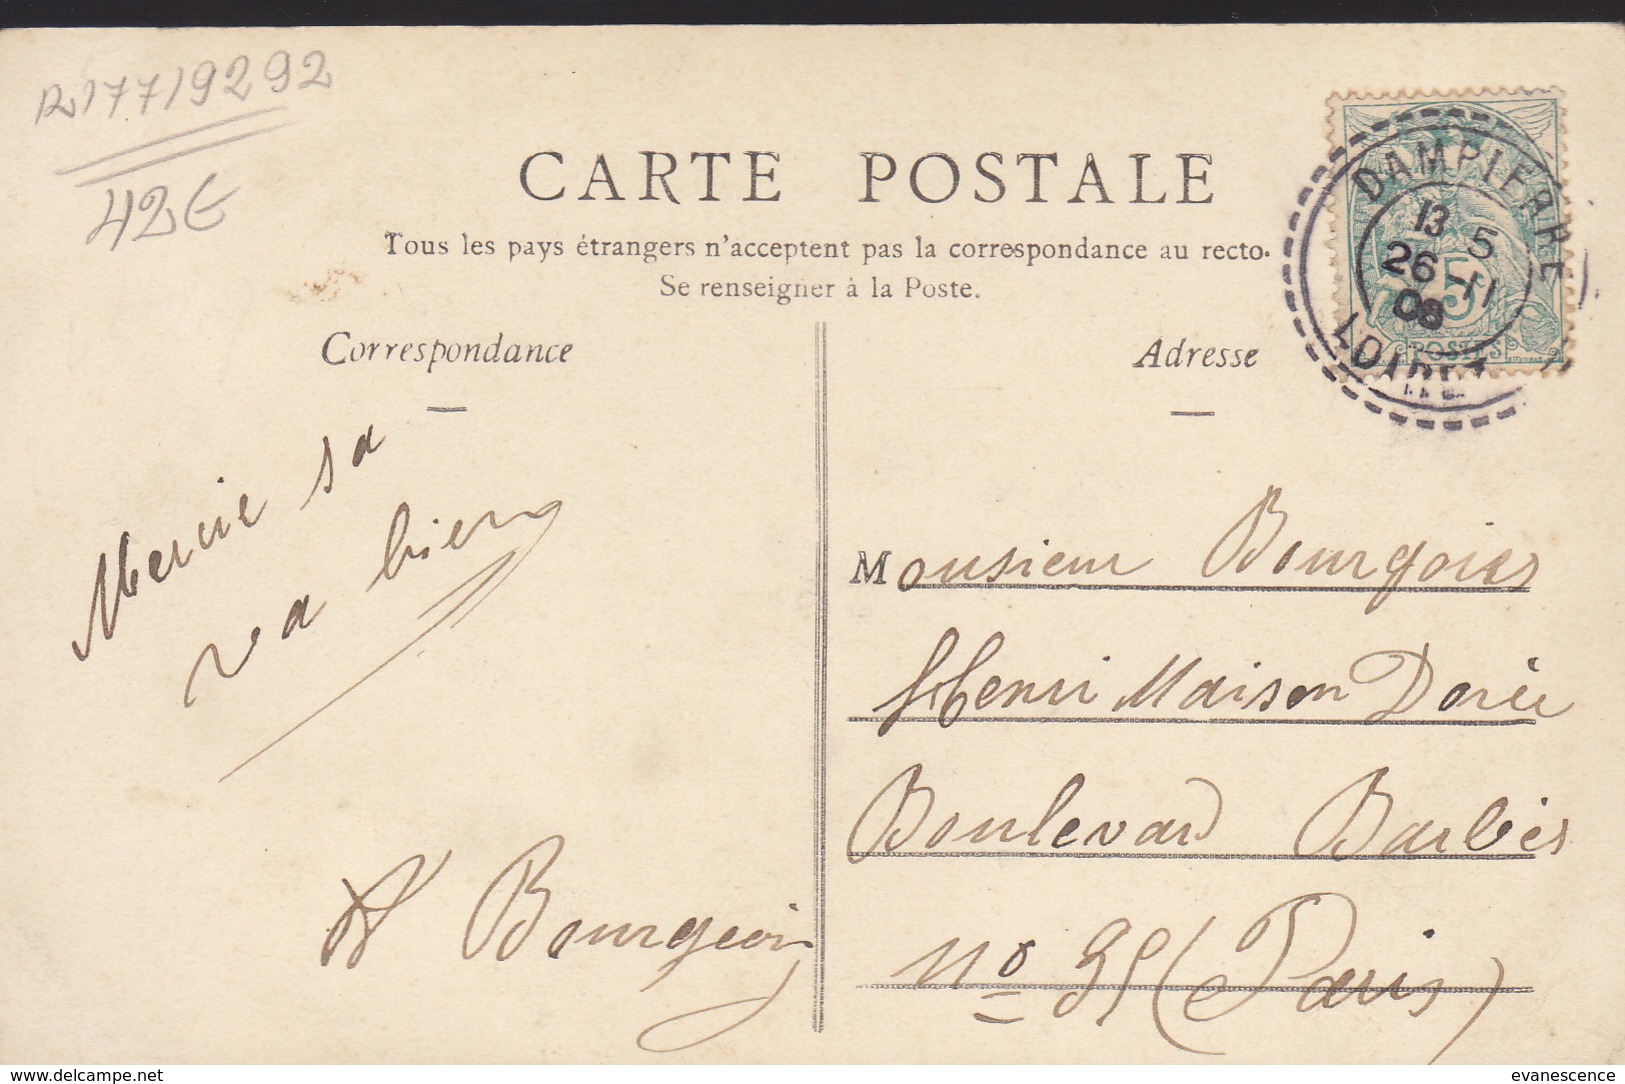 R177/9292
42€
CARTE POSTALE
Tous les pays étrangers n'acceptent pas la correspondance au recto.
Se renseigner à la Poste.
Correspondance
Adresse
DAMPIERRE
13 5
26 -11
08
LOIRET
5
POSTES
Mercie sa
va bien
Bourgeois
Monsieur Bourgoies
Henri Maison Dorée
Boulevard Barbès
No 95 (Paris)
www.delcampe.net
evanescence